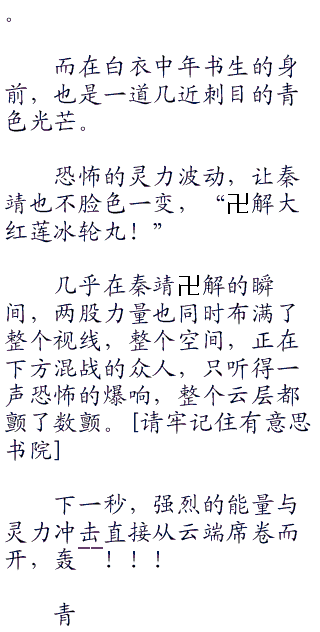 。
而在白衣中年书生的身
前，也是一道几近刺目的青
色光芒。
恐怖的灵力波动，让秦
靖也不脸色一变，“卍解大
红莲冰轮丸！”
几乎在秦靖卍解的瞬
间，两股力量也同时布满了
整个视线，整个空间，正在
下方混战的众人，只听得一
声恐怖的爆响，整个云层都
颤了数颤。[请牢记住有意思
书院]
下一秒，强烈的能量与
灵力冲击直接从云端席卷而
开，轰——！！！
青